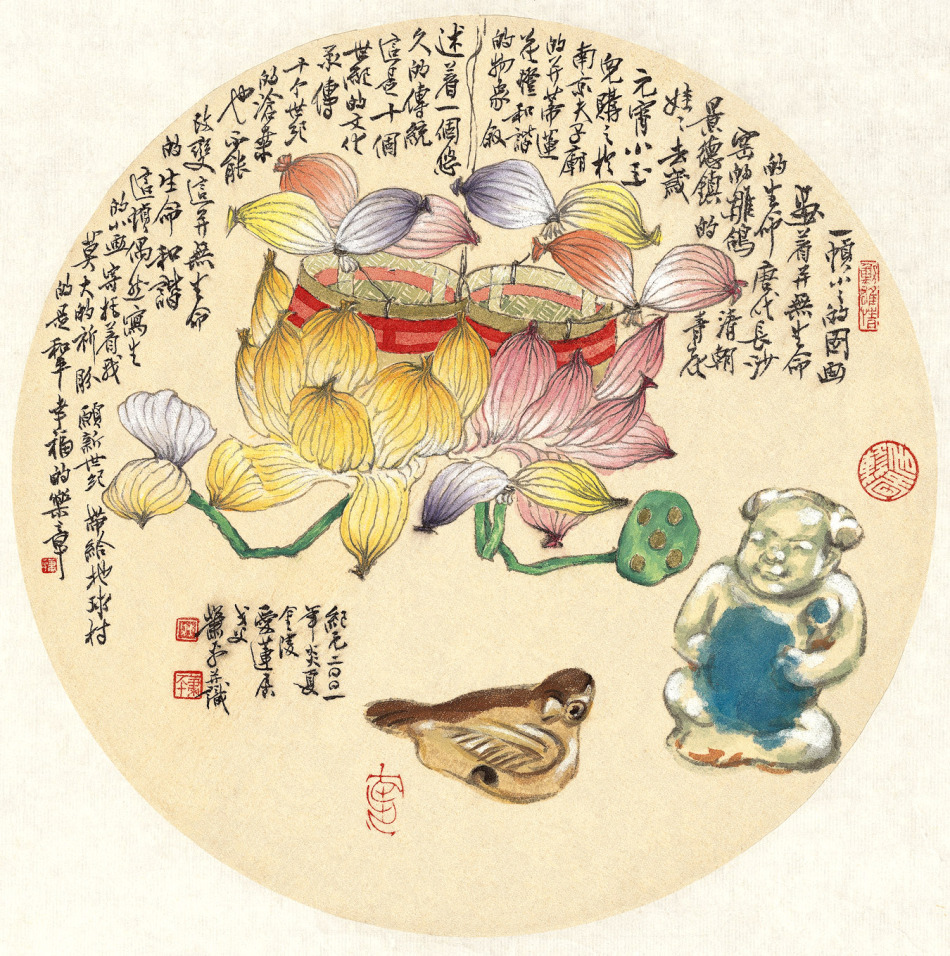 一幀小小的國画
画着并無生命
的生命 唐代長沙
窑的雛鴿 清朝
景德鎮的 青花
娃娃 去歲
元宵小玉
兒購之於
南京夫子廟
的并蒂蓮
花燈和諧
的物象 敘
述着一個悠
久的傳統
這是十個
世紀的文化
承傳
十个世紀
的滄桑
也不能
改變這并無生命
的生命和諧
這幀偶然寫生
的小画寄托着我
莫大的祈盼 願新世紀 帶給地球村
的是和平幸福的樂章
紀元二〇〇一
年炎夏
金陵
愛蓮居
戈父
蕭平并識